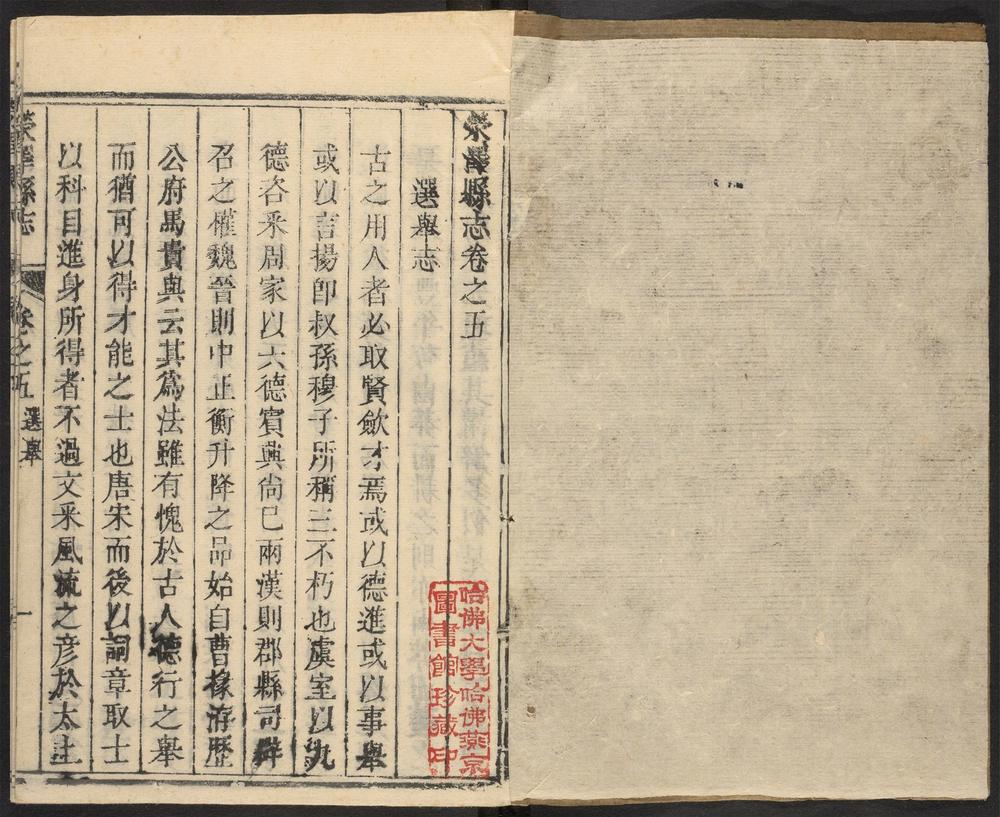 滎澤縣志卷之五
選舉志
古之用人者必取賢歛才焉或以德進或以事舉
或以言揚卽叔孫穆子所稱三不朽也虞室以九
德咨采周家以六德賓興尚已兩漢則郡縣司辟
召之權魏晉則中正衡升降之品始自曹掾洊歷
公府馬貴與云其爲法雖有愧於古人德行之舉
而猶可以得才能之士也唐宋而後以詞章取士
以科目進身所得者不過文采風流之彥於太上
滎澤縣志
卷之五
選舉
一
哈佛大學哈佛燕京
圖書館珍藏印